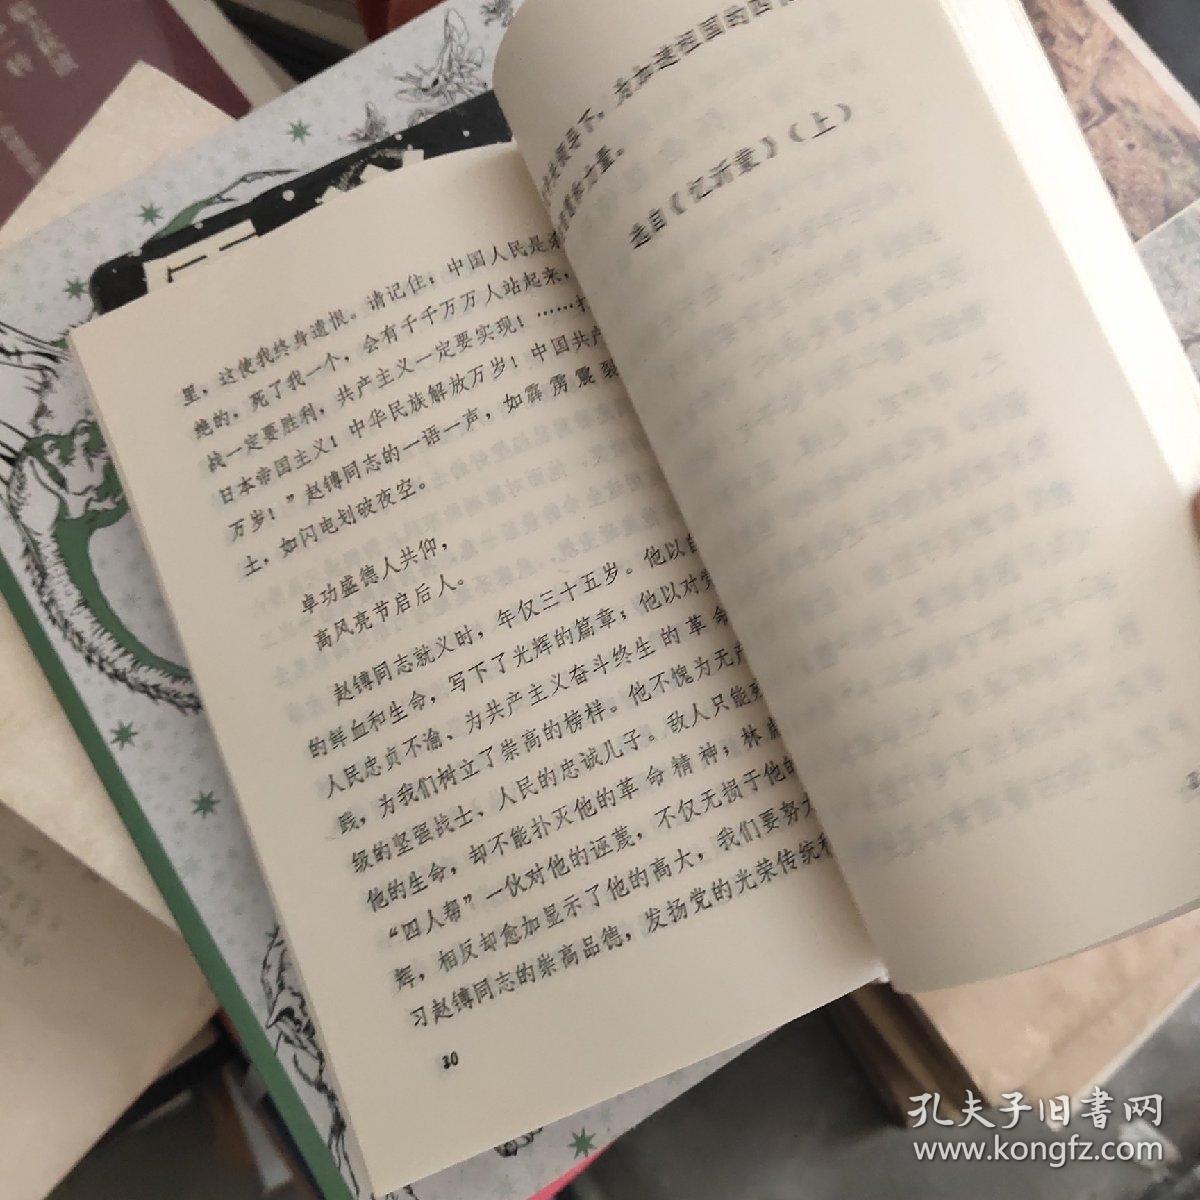 里，这使我终身遗恨。请记住：中国人民是杀
绝的，死了我一个，会有千千万万人站起来，
战一定要胜利，共产主义一定要实现！……打
日本帝国主义！中华民族解放万岁！中国共产
万岁！”赵镈同志的一语一声，如霹雳震裂
土，如闪电划破夜空。
卓功盛德人共仰，
高风亮节启后人。
赵镈同志就义时，年仅三十五岁。他以自
的鲜血和生命，写下了光辉的篇章；他以对党
人民忠贞不渝、为共产主义奋斗终生的革命
践，为我们树立了崇高的榜样。他不愧为无产
级的坚强战士、人民的忠诚儿子。敌人只能
他的生命，却不能扑灭他的革命精神；林
“四人帮”一伙对他的诬蔑，不仅无损于他的
辉，相反却愈加显示了他的高大，我们要努力
习赵镈同志的崇高品德，发扬党的光荣传统和
30
领导下，为加速祖国的四
力量。
选自《忆沂蒙》（上）
孔夫子旧书网
www.kongfz.com